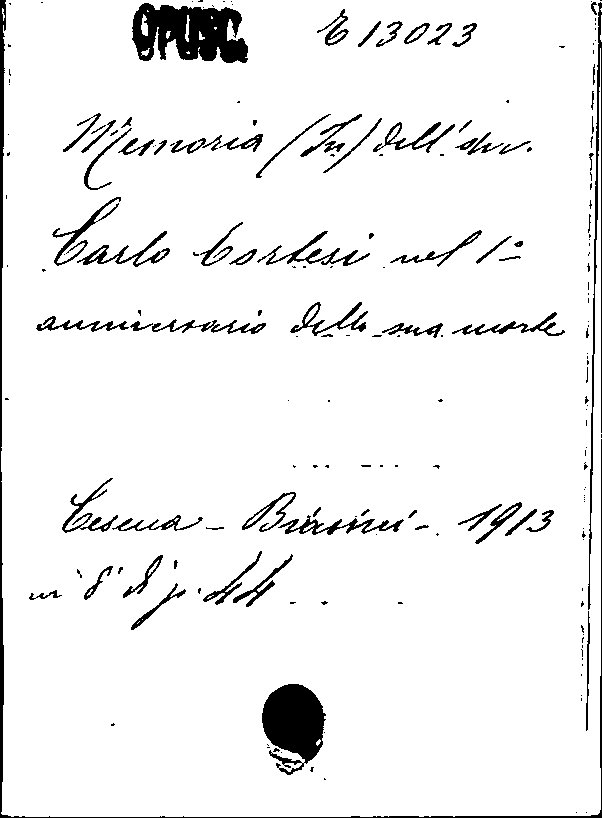 OPUSC.
E 13023
Memoria (In) dell'avv.
Carlo Cortesi nel 1º
anniversario della sua morte
Cesena - Biasini - 1913
in 8º di p. 44